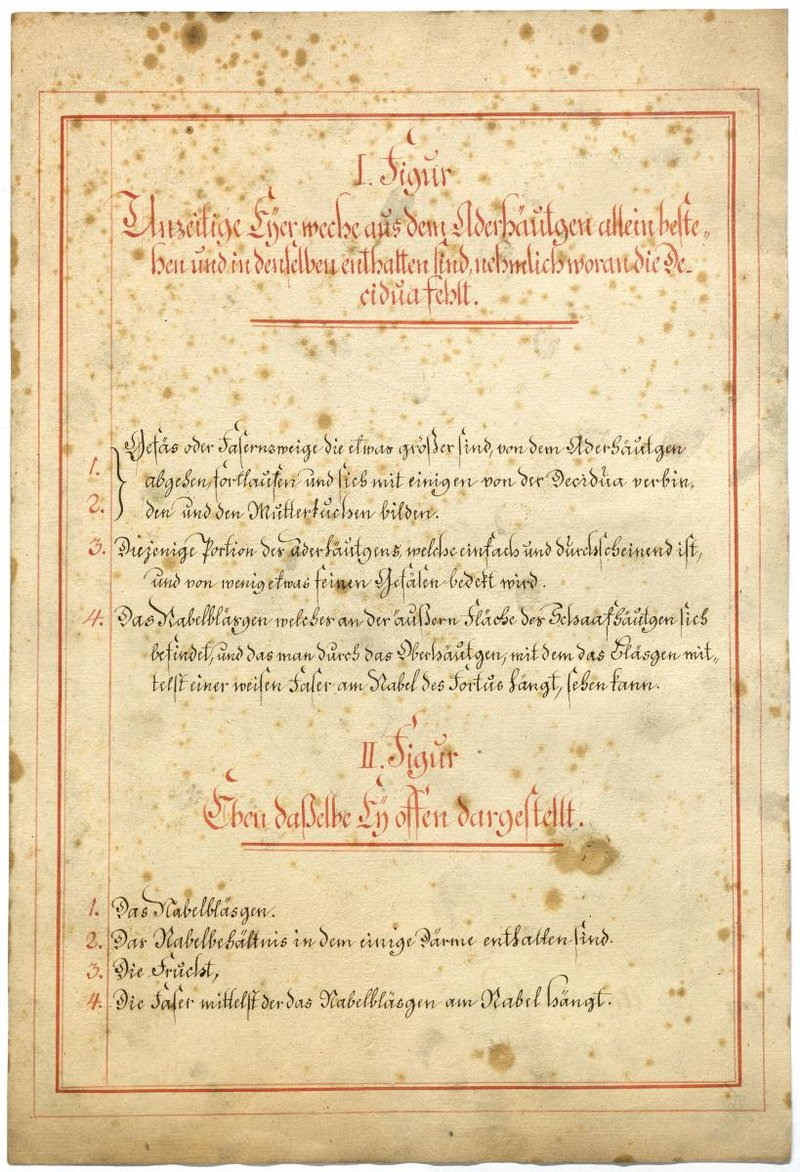 I. Figur
Unzeitige Eyer weche aus dem Aderhäutgen allein beste„
hen und in denselben enthalten sind, nehmlich woran die De-
cidua fehlt.
1. Gefäs oder Fasernzweige die etwas größer sind, von dem Aderhäutgen
abgehen, fortlaufen und sich mit einigen von der Decidua verbin,
2. den und den Mutterkuchen bilden.
3. Diejenige Portion des aderhäutgens, welche einfach und durchscheinend ist,
und von wenig etwas feinen Gefäsen bedekt wird.
4. Das Nabelbläsgen welches an der äußern Fläche des Schaafhäutgen sich
befindet, und das man durch das Oberhäutgen, mit dem das Bläsgen mit„
telst einer weisen Faser am Nabel des Foetus hängt, sehen kann.
II. Figur
Eben daßelbe Ey offen dargestellt.
1. Das Nabelbläsgen.
2. Das Nabelbehältnis in dem einige Därme enthalten sind.
3. Die Frucht,
4. Die Faser mittelst der das Nabelbläsgen am Nabel hängt.